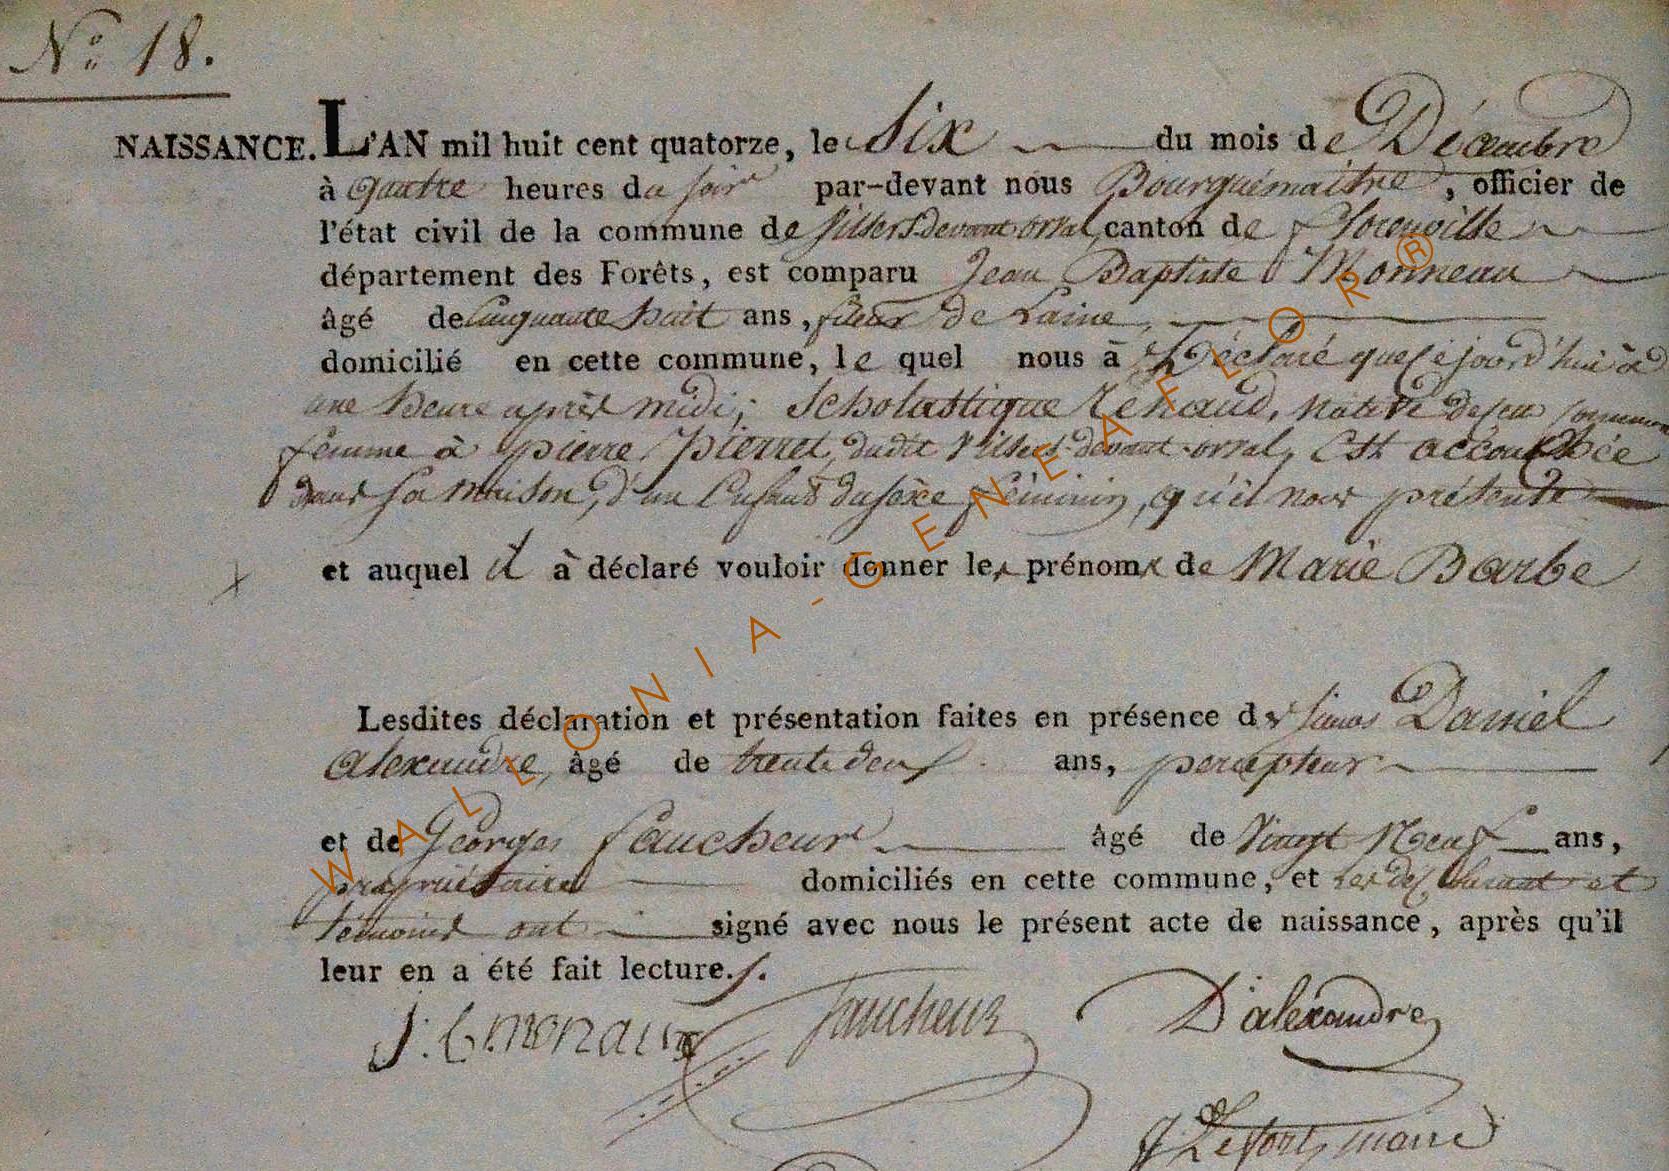 N.o 18.
NAISSANCE. L'AN mil huit cent quatorze, le Six du mois de Décembre
à quatre heures du soir par-devant nous Bourguémaitre, officier de
l'état civil de la commune de Villers-devant-orval, canton de Florenville
département des Forêts, est comparu Jean Baptiste Monneau
âgé de Cinquante huit ans, fileur de Laine,
domicilié en cette commune, le quel nous à Déclaré que ce jourd'hui à
une heure après midi; Scholastique Renaud, native de cette commune
femme à pierre Pierret, dudit Villers-devant-orval, Est accouchée
dans sa maison, d'un Enfant du sexe féminin, qu'il nous présente
et auquel il à déclaré vouloir donner les prénoms de Marie Barbe
Lesdites déclaration et présentation faites en présence des sieurs Daniel
alexandre, âgé de trente deux ans, percepteur
et de Georges faucheur âgé de Vingt Neuf ans,
propriétaire domiciliés en cette commune, et les déclarant et
témoins ont signé avec nous le présent acte de naissance, après qu'il
leur en a été fait lecture.
J: b monaux faucheur D'alexandre
Lefort, maire
WALLONIA-GENEAFLOR®